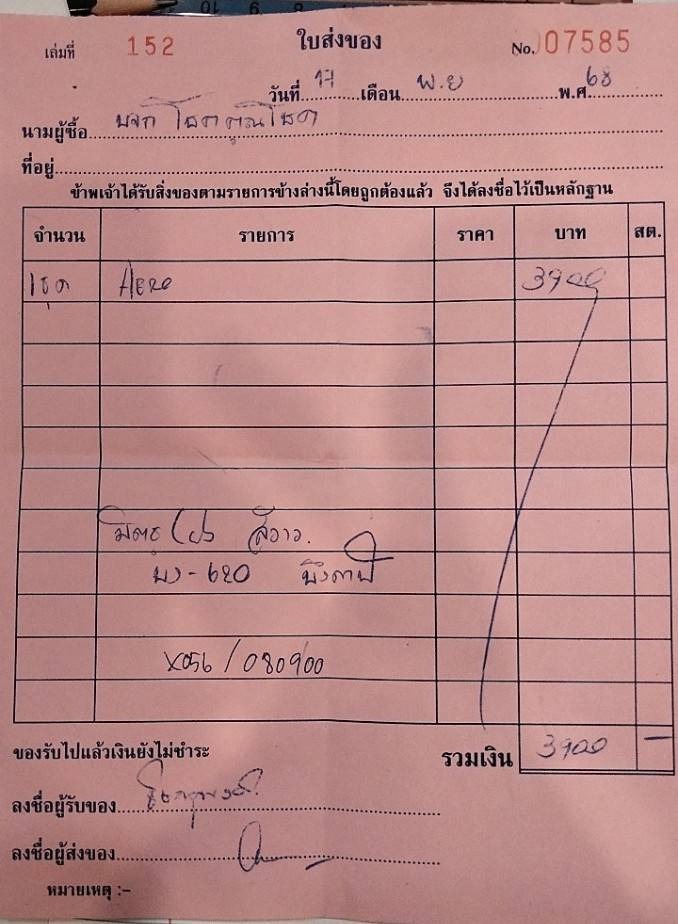 เล่มที่ 152 ใบส่งของ No. 07585
วันที่ 17 เดือน พ.ย พ.ศ. 68
นามผู้ซื้อ บจก โชคคูณโชค
ที่อยู่
ข้าพเจ้าได้รับสิ่งของตามรายการข้างล่างนี้โดยถูกต้องแล้ว จึงได้ลงชื่อไว้เป็นหลักฐาน
จำนวน รายการ ราคา บาท สต.
1ชุด AERO 3900
สีขาว.
บง-620 บึงกาฬ
X056/080900
ของรับไปแล้วเงินยังไม่ชำระ รวมเงิน 3900 -
ลงชื่อผู้รับของ
ลงชื่อผู้ส่งของ
หมายเหตุ :-